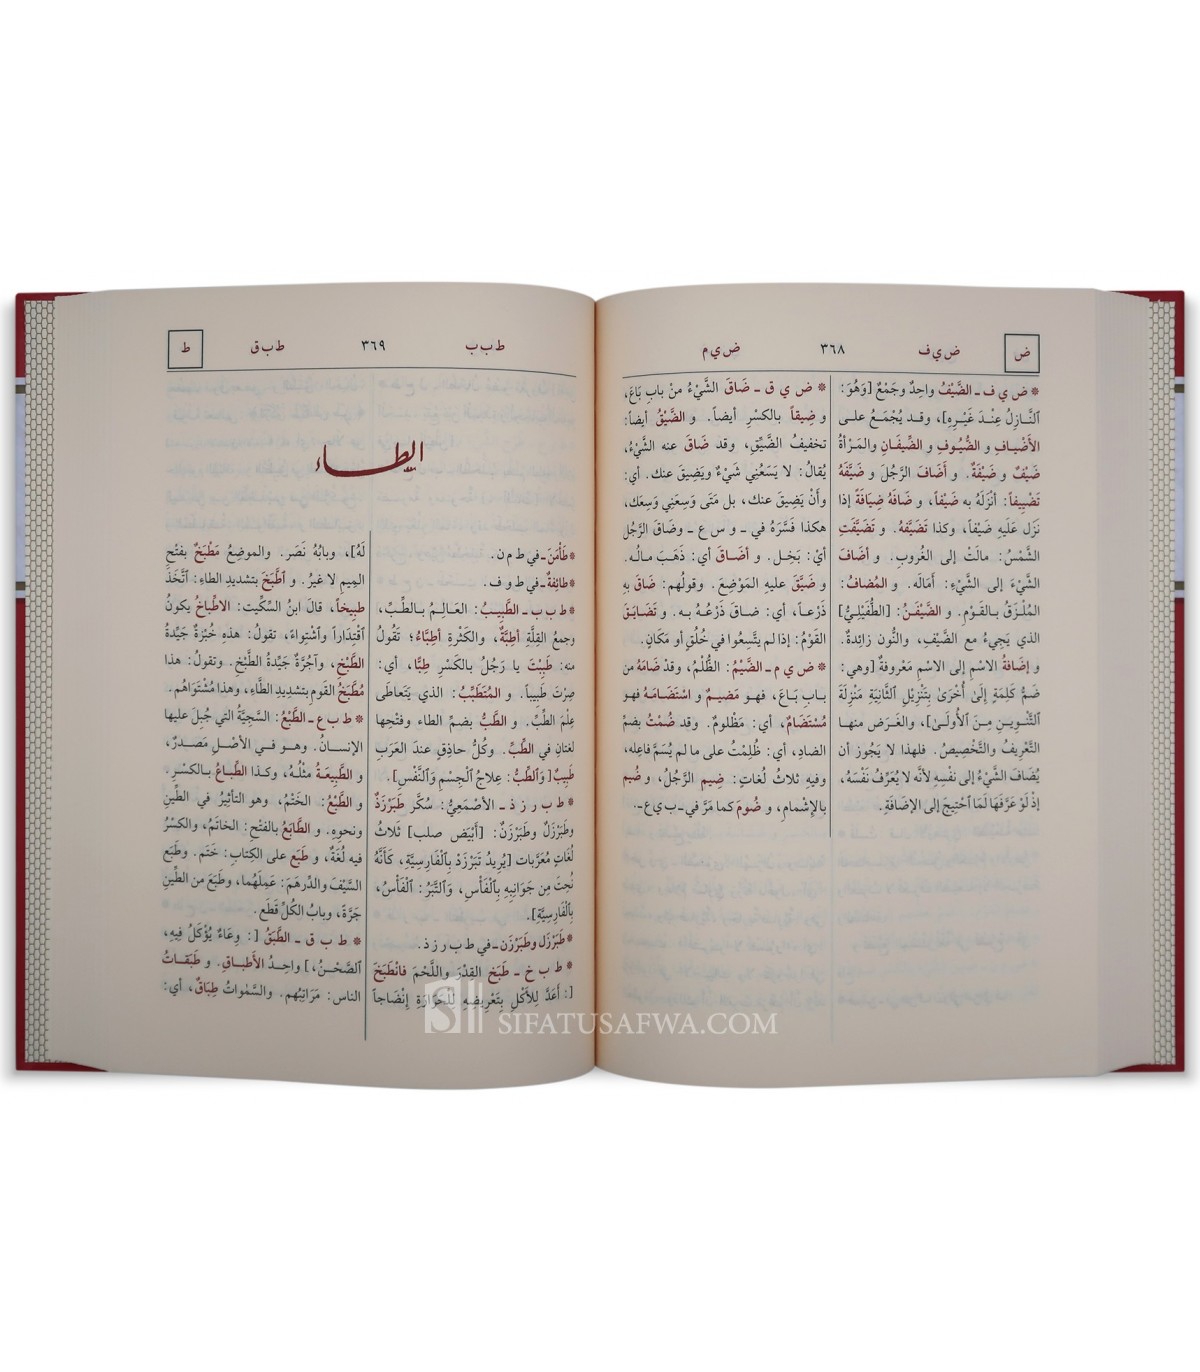 ض
ض ي ف
٣٦٨
ض ي م
* ض ي ف ـ الضَّيْفُ واحِدٌ وجَمْعٌ [وَهُوَ:
ٱلنَّازِلُ عِنْدَ غَيْرِهِ]، وقـد يُجْمَعُ علـى
الأَضْيـافِ و الضُّيُـوفِ و الضِّيفَـانِ والمَـرْأةُ
ضَيْفٌ و ضَيْفَةٌ. و أَضَافَ الرَّجُلَ و ضَيَّفَهُ
تَضْيِيفاً: أَنْزَلَهُ به ضَيْفاً، و ضَافَهُ ضِيَافَةً إذا
نَزَل عَلَيْهِ ضَيْفاً، وكذا تَضَيَّفَهُ. و تَضَيَّفَتِ
الشَّمْسُ: مالَتْ إلى الغُروبِ. و أَضَافَ
الشَّيْءَ إلى الشَّيْءِ: أَمَالَه. و المُضَافُ:
المُلْزَقُ بـالقَـوْم. و الضَّيْفَـنُ: [الطُّفَيْلِيُّ]
الذي يَجِيءُ مع الضَّيْفِ، والنُّون زائِدةٌ.
و إضافةُ الاسْمِ إلى الاسْمِ مَعْروفةٌ [وهي:
ضَمُّ كَلِمَةٍ إِلَىٰ أُخْرَىٰ بِتَنْزِيلِ ٱلثَّانِيَةِ مَنْزِلَةَ
ٱلتَّنْـوِينِ مِـنَ ٱلْأُولَىٰ]، والغَـرَض منهـا
التَّعْرِيفُ والتَّخْصِيصُ. فلهذا لا يَجُوز أن
يُضَافَ الشَّيْءُ إلى نفسِهِ لأنَّه لا يُعَرِّفُ نَفْسَهُ،
إذْ لَوْ عَرَّفَهَا لَمَا ٱحْتِيجَ إلى الإضَافَةِ.
* ض ي ق ـ ضَاقَ الشَّيْءُ منْ بابِ بَاعَ،
و ضِيقاً بالكسْرِ أيضاً. و الضَّيْقُ أيضاً:
تخفيفُ الضَّيِّقِ، وقد ضَاقَ عنه الشَّيْءُ،
يُقالُ: لا يَسَعُنِي شَيْءٌ ويَضِيقَ عنك. أي:
وأنْ يَضِيقَ عنك، بل مَتَى وَسِعَنِي وَسِعَك،
هكذا فَسَّرَهُ فـي ـ و س ع ـ وضَاقَ الرَّجُل
أيْ: بَخِـل. و أضَاقَ أي: ذَهَبَ مـالُـه.
و ضَيَّقَ عليهِ المَوْضِعَ. وقولُهم: ضَاقَ بِهِ
ذَرْعـاً، أي: ضـاقَ ذَرْعُـهُ بـه. و تَضَايَقَ
القَوْمُ: إذا لم يتَّسِعوا في خُلُقٍ أو مَكَانٍ.
* ض ي م ـ الضَّيْمُ: الظُّلْمُ، وقدْ ضَامَهُ من
بـاب بَـاعَ، فهـو مَضِيـمٌ و اسْتَضَـامَـهُ فهـو
مُسْتَضَامٌ، أي: مَظْلومٌ. وقد ضُمْتُ بضمِّ
الضادِ، أي: ظُلِمْتُ على ما لم يُسَمَّ فاعِله،
وفيهِ ثلاثُ لُغاتٍ: ضِيمَ الرَّجُلُ، و ضُيم
بالإِشْمامِ، و ضُومَ كما مَرَّ في ـ ب ي ع ـ.
ط ب ب
٣٦٩
ط ب ق
ط
الطاء
* طَأْمَنَ ـ في ط م ن.
* طائِفةٌ ـ في ط و ف.
* ط ب ب ـ الطَّبِيـبُ: العَـالِـمُ بـالطِّـبِّ،
وجمعُ القِلَّةِ أَطِبَّةٌ، و الكَثْرةِ أَطِبَّاءُ؛ تَقُولُ
منه: طَبِبْتَ يا رَجُلُ بالكَسْرِ طِبًّا، أي:
صِرْتَ طَبِيباً. و المُتَطَبِّبُ: الذي يَتَعَاطَى
عِلْمَ الطِّبِّ. و الطُّبُّ بضم الطاء وفَتْحِها
لغتانِ في الطِّبِّ. وكُلُّ حاذِقٍ عندَ العَرَبِ
طَبِيبٌ [وَٱلطِّبُّ: عِلاجُ ٱلْجِسْمِ وَٱلنَّفْسِ].
* ط ب ر ز ذ ـ الأصْمَعِيُّ: سُكَّر طَبَرْزَذٌ
وطَبَرْزَلٌ وطَبَرْزَنٌ: [أَبْيَض صلب] ثَلاثُ
لُغَاتٍ مُعَرَّبات [يُرِيدُ تَبَرْزَدْ بِٱلْفَارِسِيَّةِ، كَأَنَّهُ
نُحِتَ مِن جَوَانِبِهِ بِٱلْفَأْسِ، وَٱلتَّبَرُ: ٱلْفَأْسُ،
بِٱلْفَارِسِيَّةِ].
* طَبَرْزَل وطَبَرْزَن ـ في ط ب ر ز ذ.
* ط ب خ ـ طَبَخَ القِدْرَ واللَّحْمَ فانْطَبَخَ
[: أَعَدَّ لِلأَكْلِ بِتَعْرِيضِهِ لِلْحَرَارَةِ إِنْضَاجاً
لَهُ]، وبابُهُ نَصَر. والموضِعُ مَطْبَخٌ بفتحِ
المِيم لا غيرُ. و اَطَّبَخَ بتشديدِ الطاءِ: ٱتَّخَذَ
طبِيخاً، قالَ ابنُ السِّكِّيت: الاطِّباخُ يكونُ
ٱقْتِدَاراً وٱشْتِواءً، تقولُ: هذهِ خُبْزَةٌ جَيِّدةُ
الطَّبْخِ، وآجُرَّةٌ جَيِّدَةُ الطَّبْخِ. وتقولُ: هذا
مُطَّبَخُ القَومِ بتشديدِ الطَّاءِ، وهذا مُشْتَوَاهُم.
* ط ب ع ـ الطَّبْعُ: السَّجِيَّةُ التي جُبِلَ عليها
الإنسانُ. وهـو فـي الأصْلِ مَصْدرٌ،
و الطَّبِيعَةُ مثْلُـهُ، وكذا الطِّبـاعُ بـالكَسْرِ.
و الطَّبْعُ: الخَتْمُ، وهو التأثيرُ في الطِّينِ
ونحوِهِ. و الطَّابَعُ بالفتْحِ: الخاتَمُ، والكسْرُ
فيه لُغَةٌ، و طَبَع على الكِتابِ: خَتَم. وطَبَع
السَّيْفَ والدِّرهَمَ: عَمِلَهُما، وطَبَع من الطِّينِ
جَرَّةً، وبابُ الكُلِّ قَطَع.
* ط ب ق ـ الطَّبَقُ [: وِعَاءٌ يُؤْكَلُ فِيهِ،
ٱلصَّحْنُ،] واحِدُ الأَطبـاقِ. و طَبَقـاتُ
الناس: مَرَاتِبُهم. والسَّمٰواتُ طِبَاقٌ، أي:
SIFATUSAFWA.COM